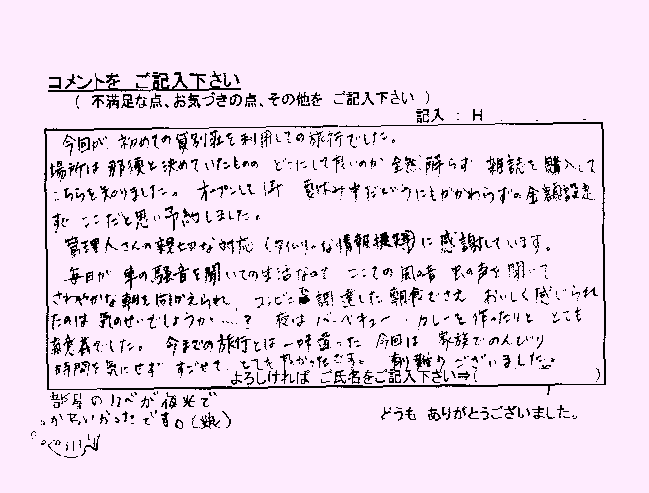 コメントを ご記入下さい
( 不満足な点、お気づきの点、その他を ご記入下さい )
記入 : H
今回が、初めての貸別荘を利用しての旅行でした。
場所は那須と決めていたものの どこにして良いのか全然解らず 雑誌を購入して
こちらを知りました。オープンして 夏休み中だというにもかかわらずの金額設定
すぐ ここだと思い予約しました。
管理人さんの親切な対応 (タイムリーな情報提供)に感謝しています。
毎日が 車の騒音を聞いての生活なので ここでの風の音 虫の声を聞いて
さわやかな朝を向かえられ コンビニ調達した朝食でさえ おいしく感じられ
たのは 気のせいでしょうか…? 夜はバーベキュー、カレーを作ったりと とても
有意義でした。今までの旅行とは一味違った今回は 家族でのんびり
時間を気にせず すごせて、とても 良かったです。有難うございました。
よろしければ ご氏名をご記入下さい⇒( )
部屋のカベが夜光で
かわいかったです。(娘)
どうも ありがとうございました。